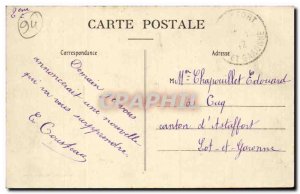 94
CARTE POSTALE
Correspondance
Adresse
Demain vous
annoncerait une nouvelle
qui va vous surprendre.
E.
Mme Chapouillet Edouard
à Cuq
canton d'Astaffort
Lot-et-Garonne